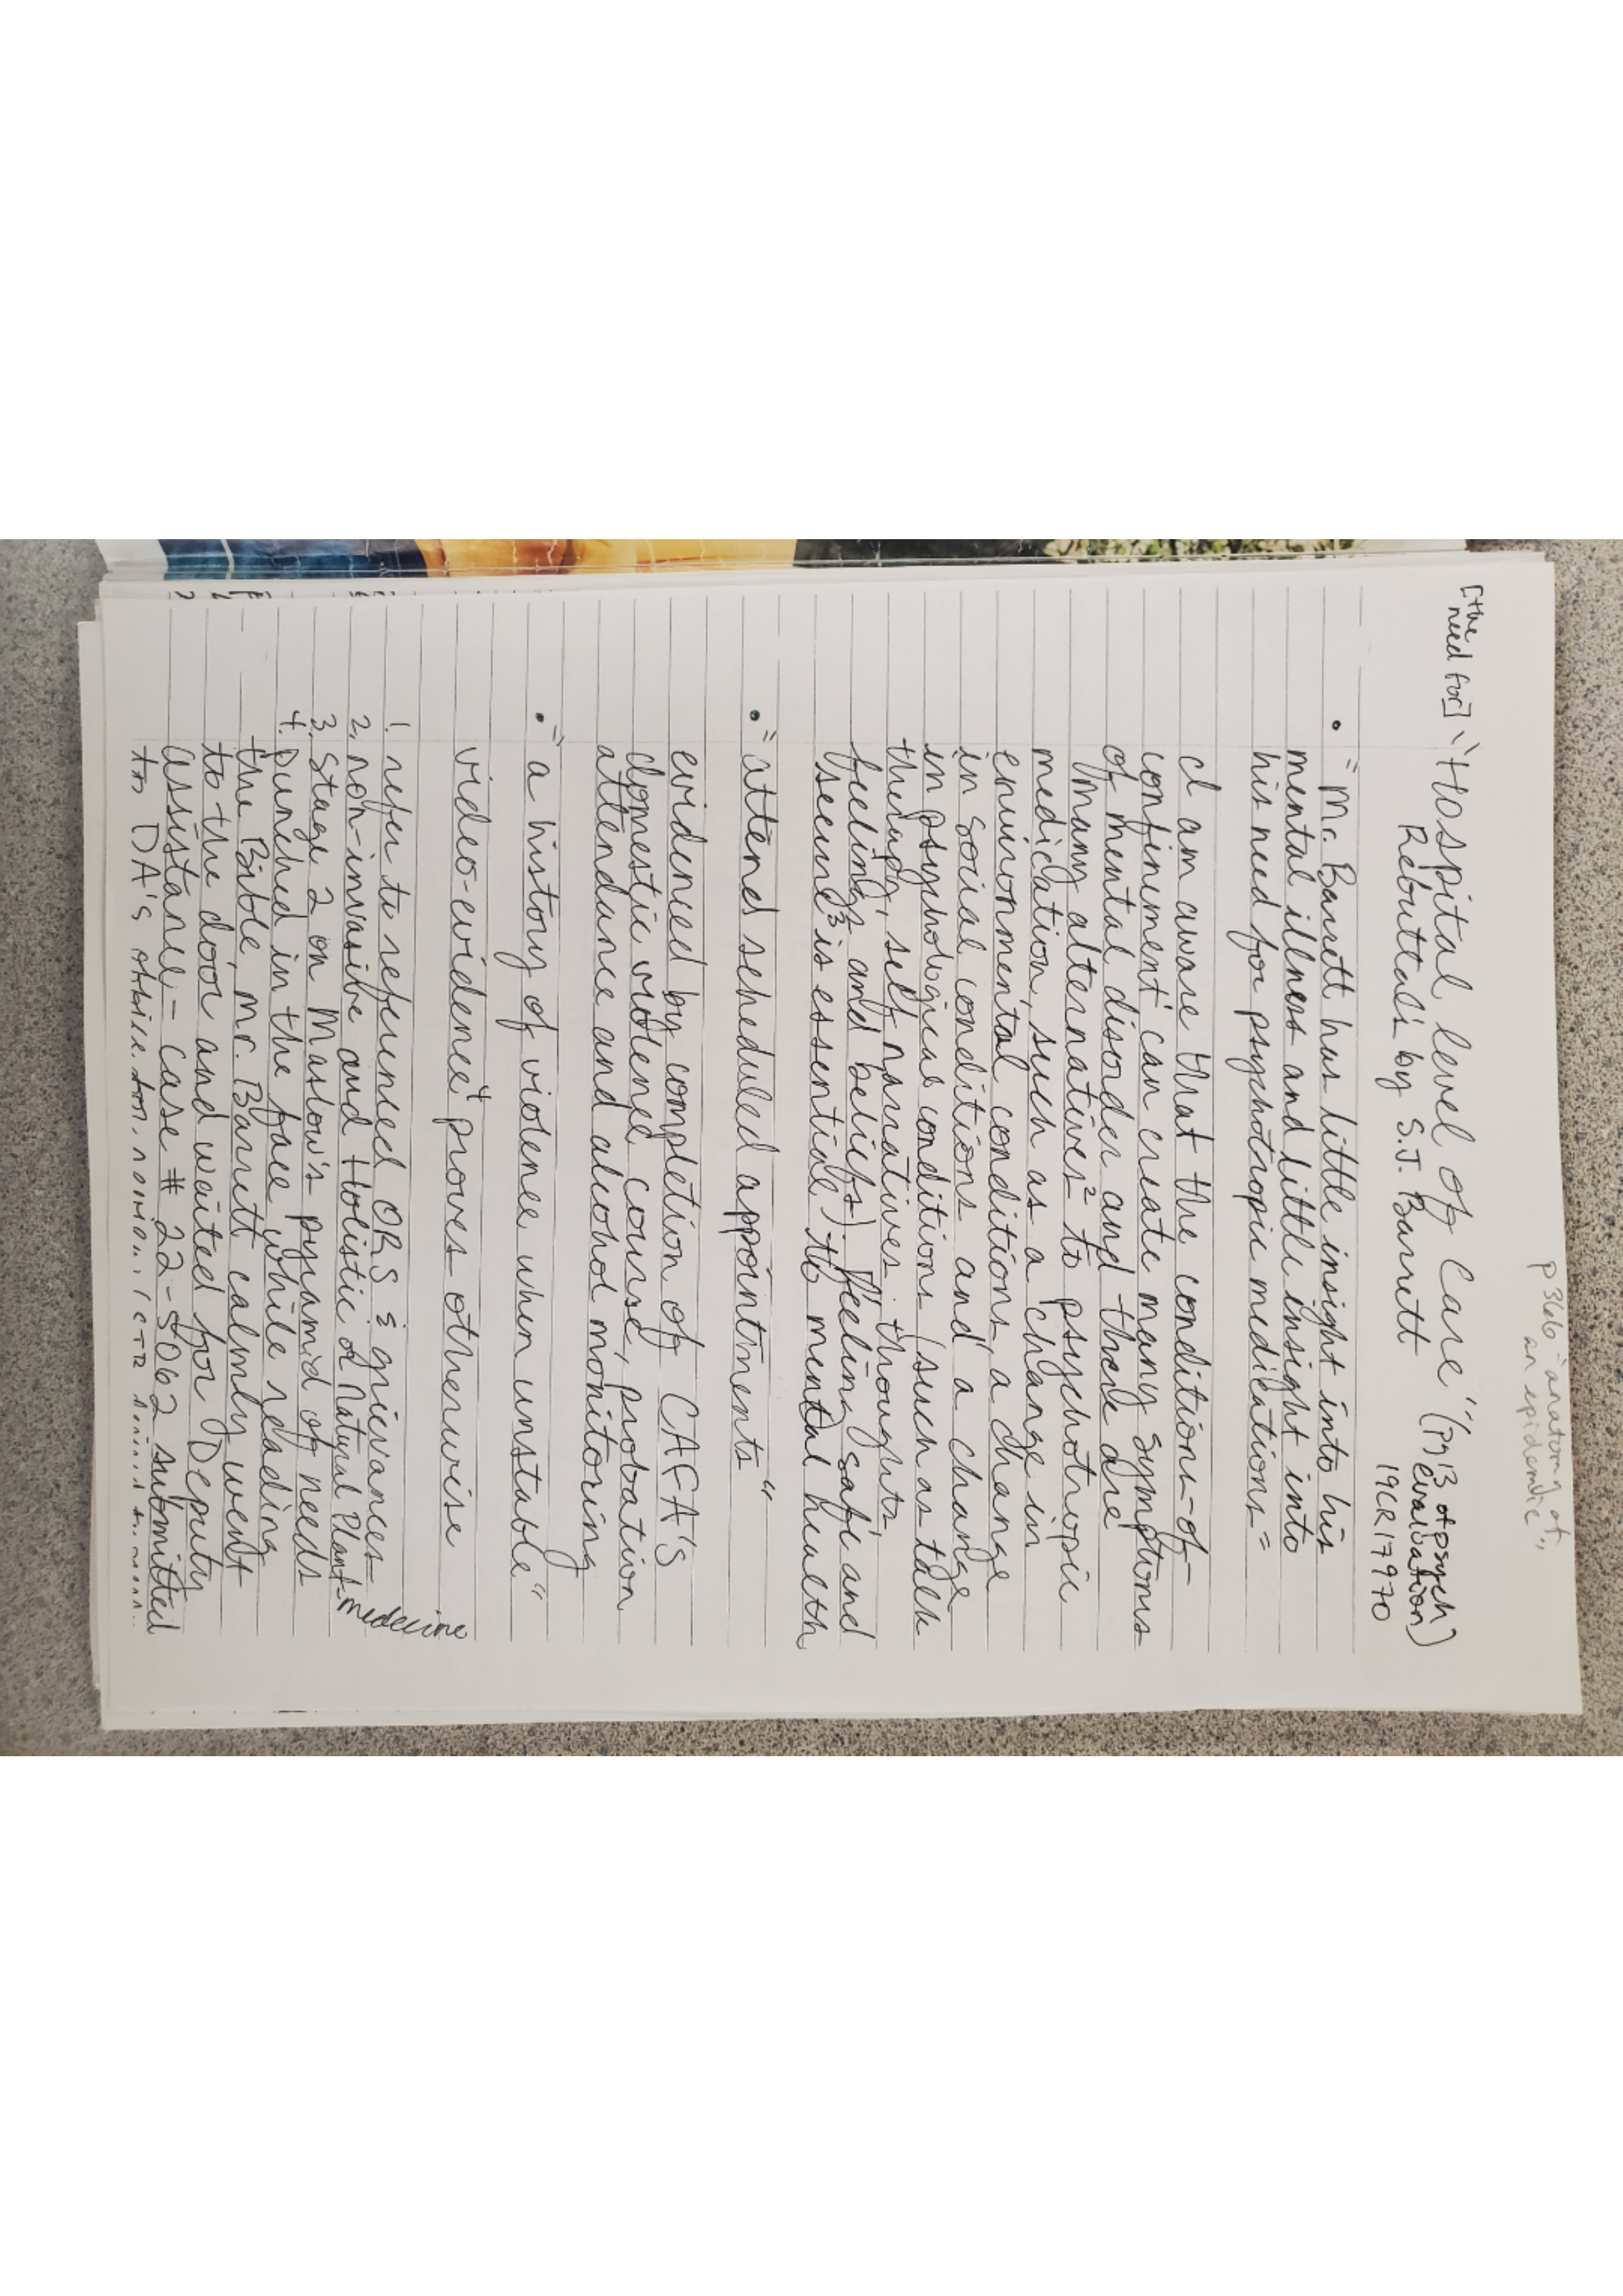 P 366 - "anatomy of
an epidemic"
[the
need for] "Hospital level of Care" (pg 13 of psych
evaluation)
Rebuttals by S.J. Barrett 19CR17970
• "Mr. Barrett has little insight into his
mental illness and little insight into
his need for psychotropic medications =
I am aware that the conditions-of-
confinement¹ can create many symptoms
of mental disorder and there are
many alternatives² to psychotropic
medication, such as a change in
environmental conditions, a change
in social conditions and a change
in psychological conditions (such as talk
therapy, self narratives: thoughts,
feelings and beliefs) feeling safe and
secure³ is essential to mental health
• "attend scheduled appointments"
evidenced by completion of CAFA's
domestic violence course, probation
attendance and alcohol monitoring
• "a history of violence when unstable"
video-evidence⁴ proves otherwise
1. refer to referenced ORS & grievances
2. non-invasive and Holistic or Natural Plant-medecine
3. Stage 2 on Maslow's pyramid of needs
4. Punched in the face while reading
the Bible, Mr. Barrett calmly went
to the door and waited for Deputy
assistance - case # 22-5062 submitted
to DA's office for